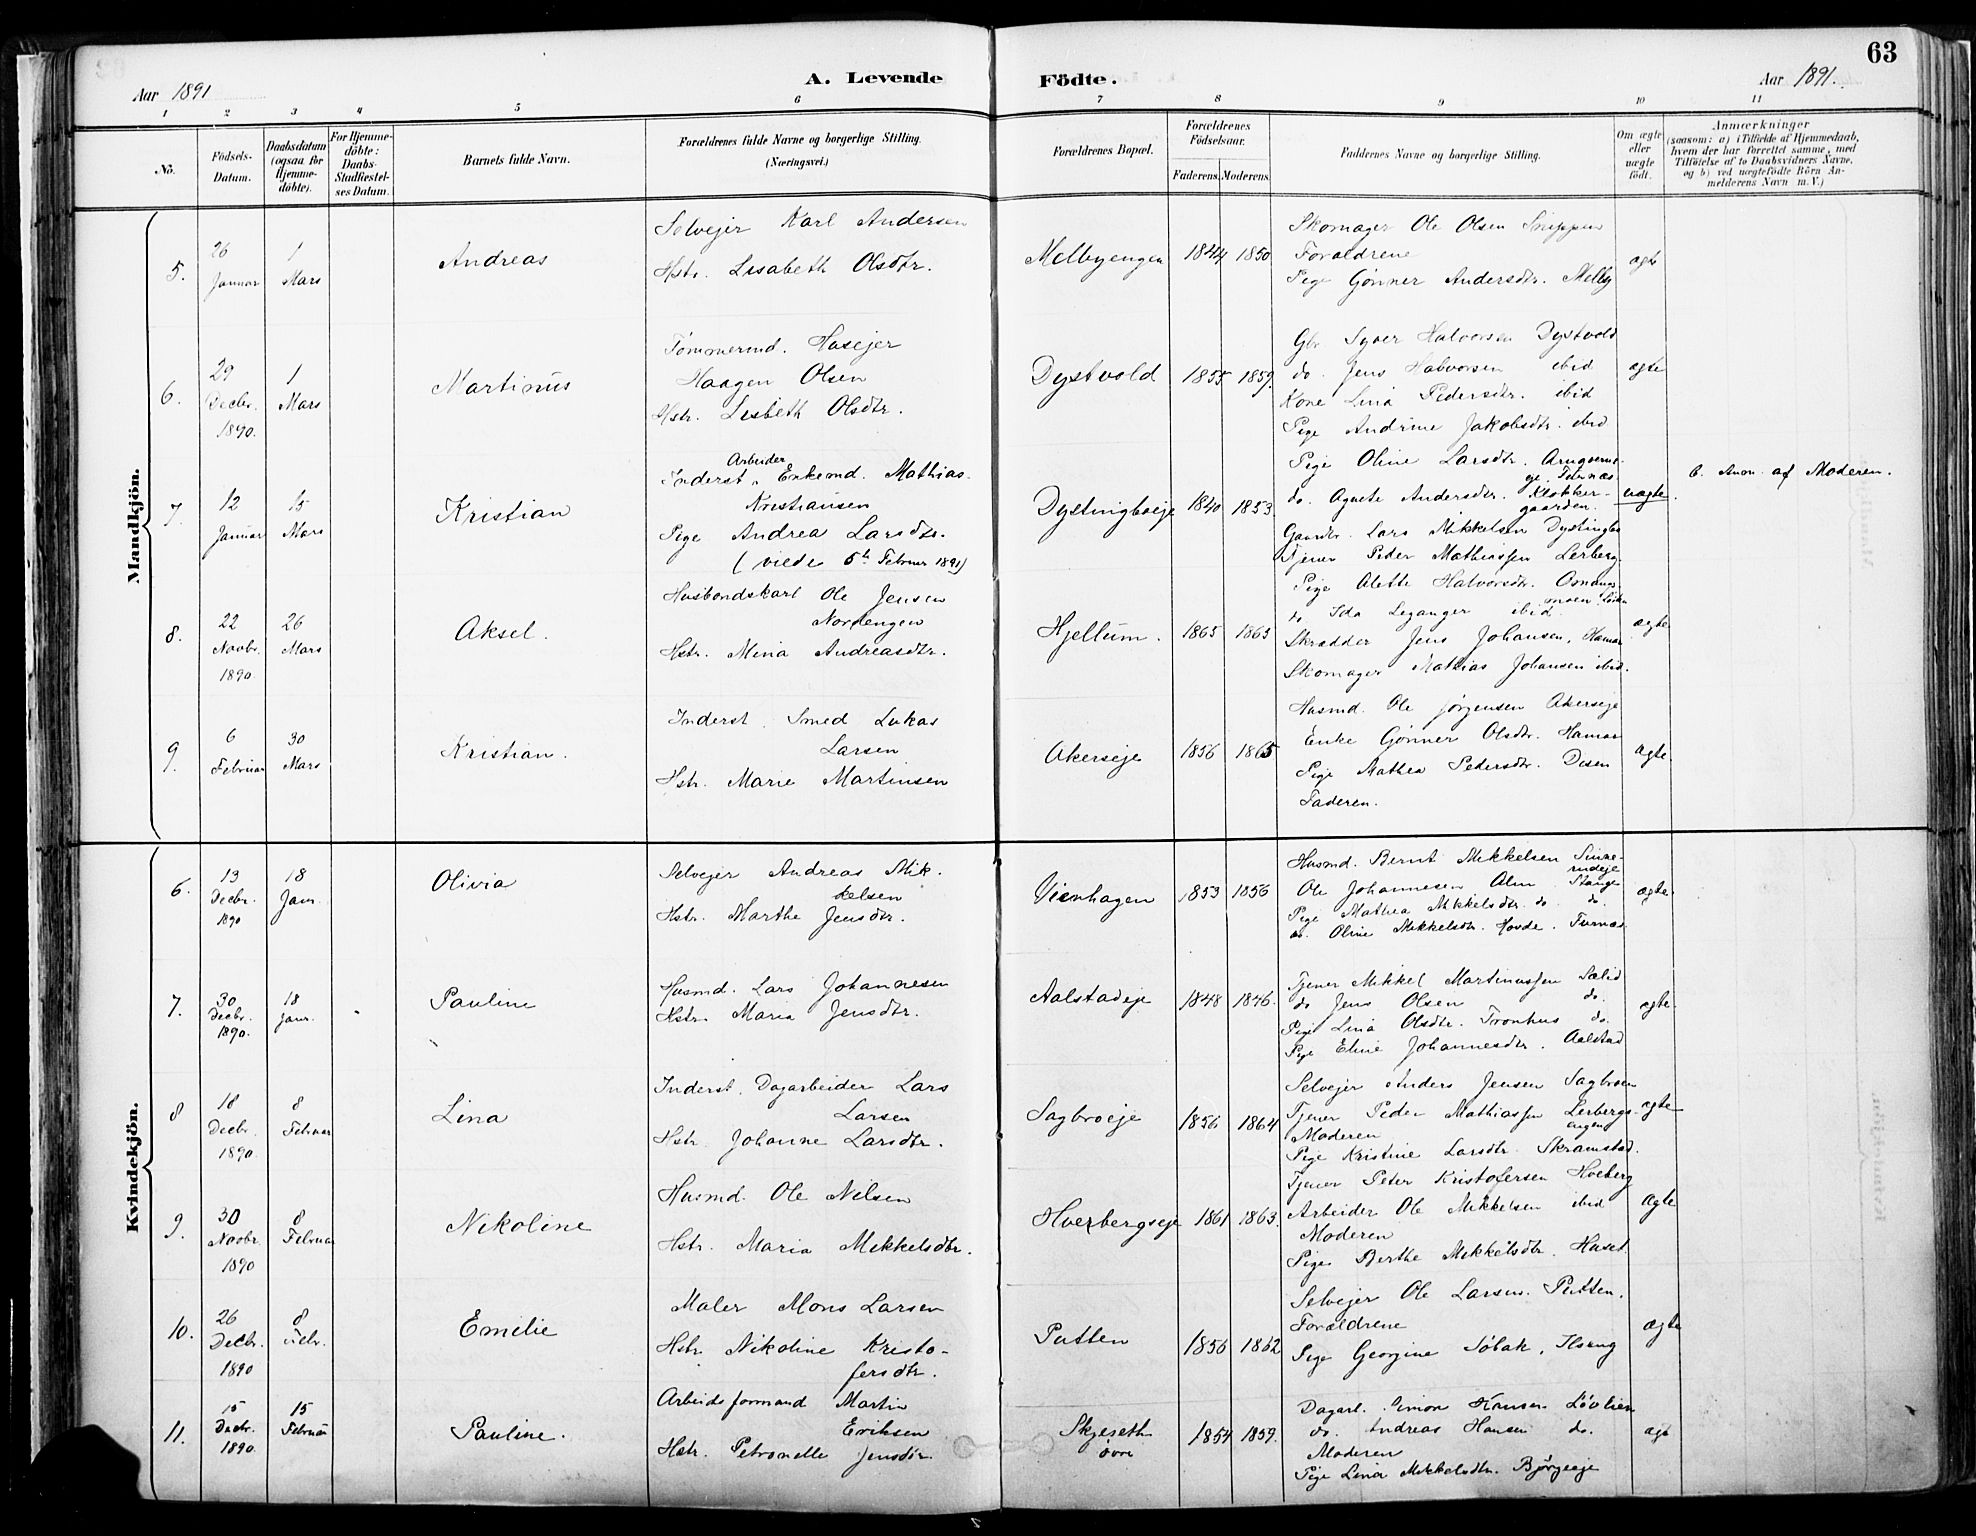 63
Aar 1891
A. Levende Födte.
Aar 1891.
1 2 3 4 5 6 7 8 9 10 11
No.
Födsels-
Datum.
Daabsdatum
(ogsaa for
Hjemme-
döbte).
For Hjemme-
döbte:
Daabs-
Stadfæstel-
ses Datum.
Barnets fulde Navn.
Forældrenes fulde Navne og borgerlige Stilling.
(Næringsvei.)
Forældrenes Bopæl.
Forældrenes
Födselsaar.
Faderens. Moderens.
Faddernes Navne og borgerlige Stilling.
Om ægte
eller
uægte
födt.
Anmærkninger
(saasom: a) i Tilfælde af Hjemmedaab,
hvem der har forrettet samme, med
Tilföielse af to Daabsvidners Navne,
og b) ved uægtefödte Börn An-
melderens Navn m. V.)
Mandkjön.
5.
26
Januar
1
Mars
Andreas
Selvejer Karl Andersen
Hstr. Lisabeth Olsdtr.
Melbyengen
1844 1850
Skomager Ole Olsen Snippen
Forældrene
Pige Gønner Andersdtr. Melby
ægte
6.
29
Decbr.
1890.
1
Mars
Martinus
Tømmermd. Husejer
Haagen Olsen
Hstr. Lisbeth Olsdtr.
Dystvold
1855 1859.
Gbr. Syver Halvorsen Dystvold
do. Jens Halvorsen ibid
Kone Lina Pedersdtr. ibid
Pige Andrine Jakobsdtr. ibid
ægte
7.
12
Januar
15
Mars
Kristian
Arbeider
Inderst, Enkemd. Mathias
Kristiansen
Pige Andrea Larsdtr.
(viede 5te Februar 1891)
Dystingboeje
1840 1853
Pige Oline Larsdtr.
Furnæs
do. Agnete Andersdtr. Klokker-
gaarden.
Gaardbr. Lars Mikkelsen Dystingbo
Tjener Peder Mathiassen Lerberg.
uægte.
b. Anm. af Moderen.
8.
22
Novbr.
1890.
26
Mars
Aksel.
Husbondskarl Ole Jensen
Nordengen
Hstr. Mina Andreasdtr.
Hjellum.
1865 1863
Pige Alette Halvorsdtr.
do Ida Leganger ibid
Skrædder Jens Johansen, Hamar
Skomager Mathias Johansen ibid.
ægte
9.
6
Februar
30
Mars
Kristian.
Inderst, Smed Lukas
Larsen
Hstr. Marie Martinsen
Akerseje
1856 1865
Husmd. Ole Jørgensen Akerseje
Enke Gønner Olsdtr. Hamar
Pige Mathea Pedersdtr. Disen
Faderen.
ægte.
Kvindekjön.
6.
13
Decbr.
1890
18
Janr.
Olivia
Selvejer Andreas Mik-
kelsen
Hstr. Marthe Jensdtr.
Vienhagen
1853 1856
Husmd. Bernt Mikkelsen Sinne-
rudeje
Ole Johannesen Alm Stange
Pige Mathea Mikkelsdtr. do. do.
do. Oline Mikkelsdtr. Hovde. Furnæs
ægte.
7.
30
Decbr.
1890.
18
Janr.
Pauline
Husmd. Lars Johannesen
Hstr. Maria Jensdtr.
Aalstadeje
1848 1846.
Tjener Mikkel Martinussen Sælid
do Jens Olsen do.
Pige Lina Olsdtr. Tronhus do.
Pige Eline Johannesdtr. Aalstad
ægte.
8
18
Decbr.
1890.
8
Februar
Lina
Inderst. Dagarbeider Lars
Larsen
Hstr. Johanne Larsdtr.
Sagbroeje
1856 1864
Selvejer Anders Jensen Sagbroen
Tjener Peder Mathiassen Lerbergs-
engen
Moderen
Pige Kristine Larsdtr. Skramstad.
ægte
9.
30
Novbr.
1890
8
Februar
Nikoline
Husmd. Ole Nilsen
Hstr. Maria Mikkelsdtr.
Hverbergseje
1861 1863.
Tjener Peter Kristofersen Hveberg
Arbeider Ole Mikkelsen ibid
Moderen
Pige Berthe Mikkelsdtr. Huset.
ægte
10.
26
Decbr.
1890
8
Febr.
Emilie
Maler Mons Larsen
Hstr. Nikoline Kristo-
fersdtr.
Putten
1856 1862
Selvejer Ole Larsen. Putten.
Forældrene
Pige Georgine Søbak, Ilseng
ægte
11.
15
Decbr.
1890.
15
Februar
Pauline.
Arbeidsformand Martin
Eriksen
Hstr. Petronelle Jensdtr.
Skjeseth
øvre
1854 1859.
Dagarb. Simon Hansen Løvlien
do. Andreas Hansen do.
Moderen
Pige Lina Mikkelsdtr. Bjørgeeje
ægte